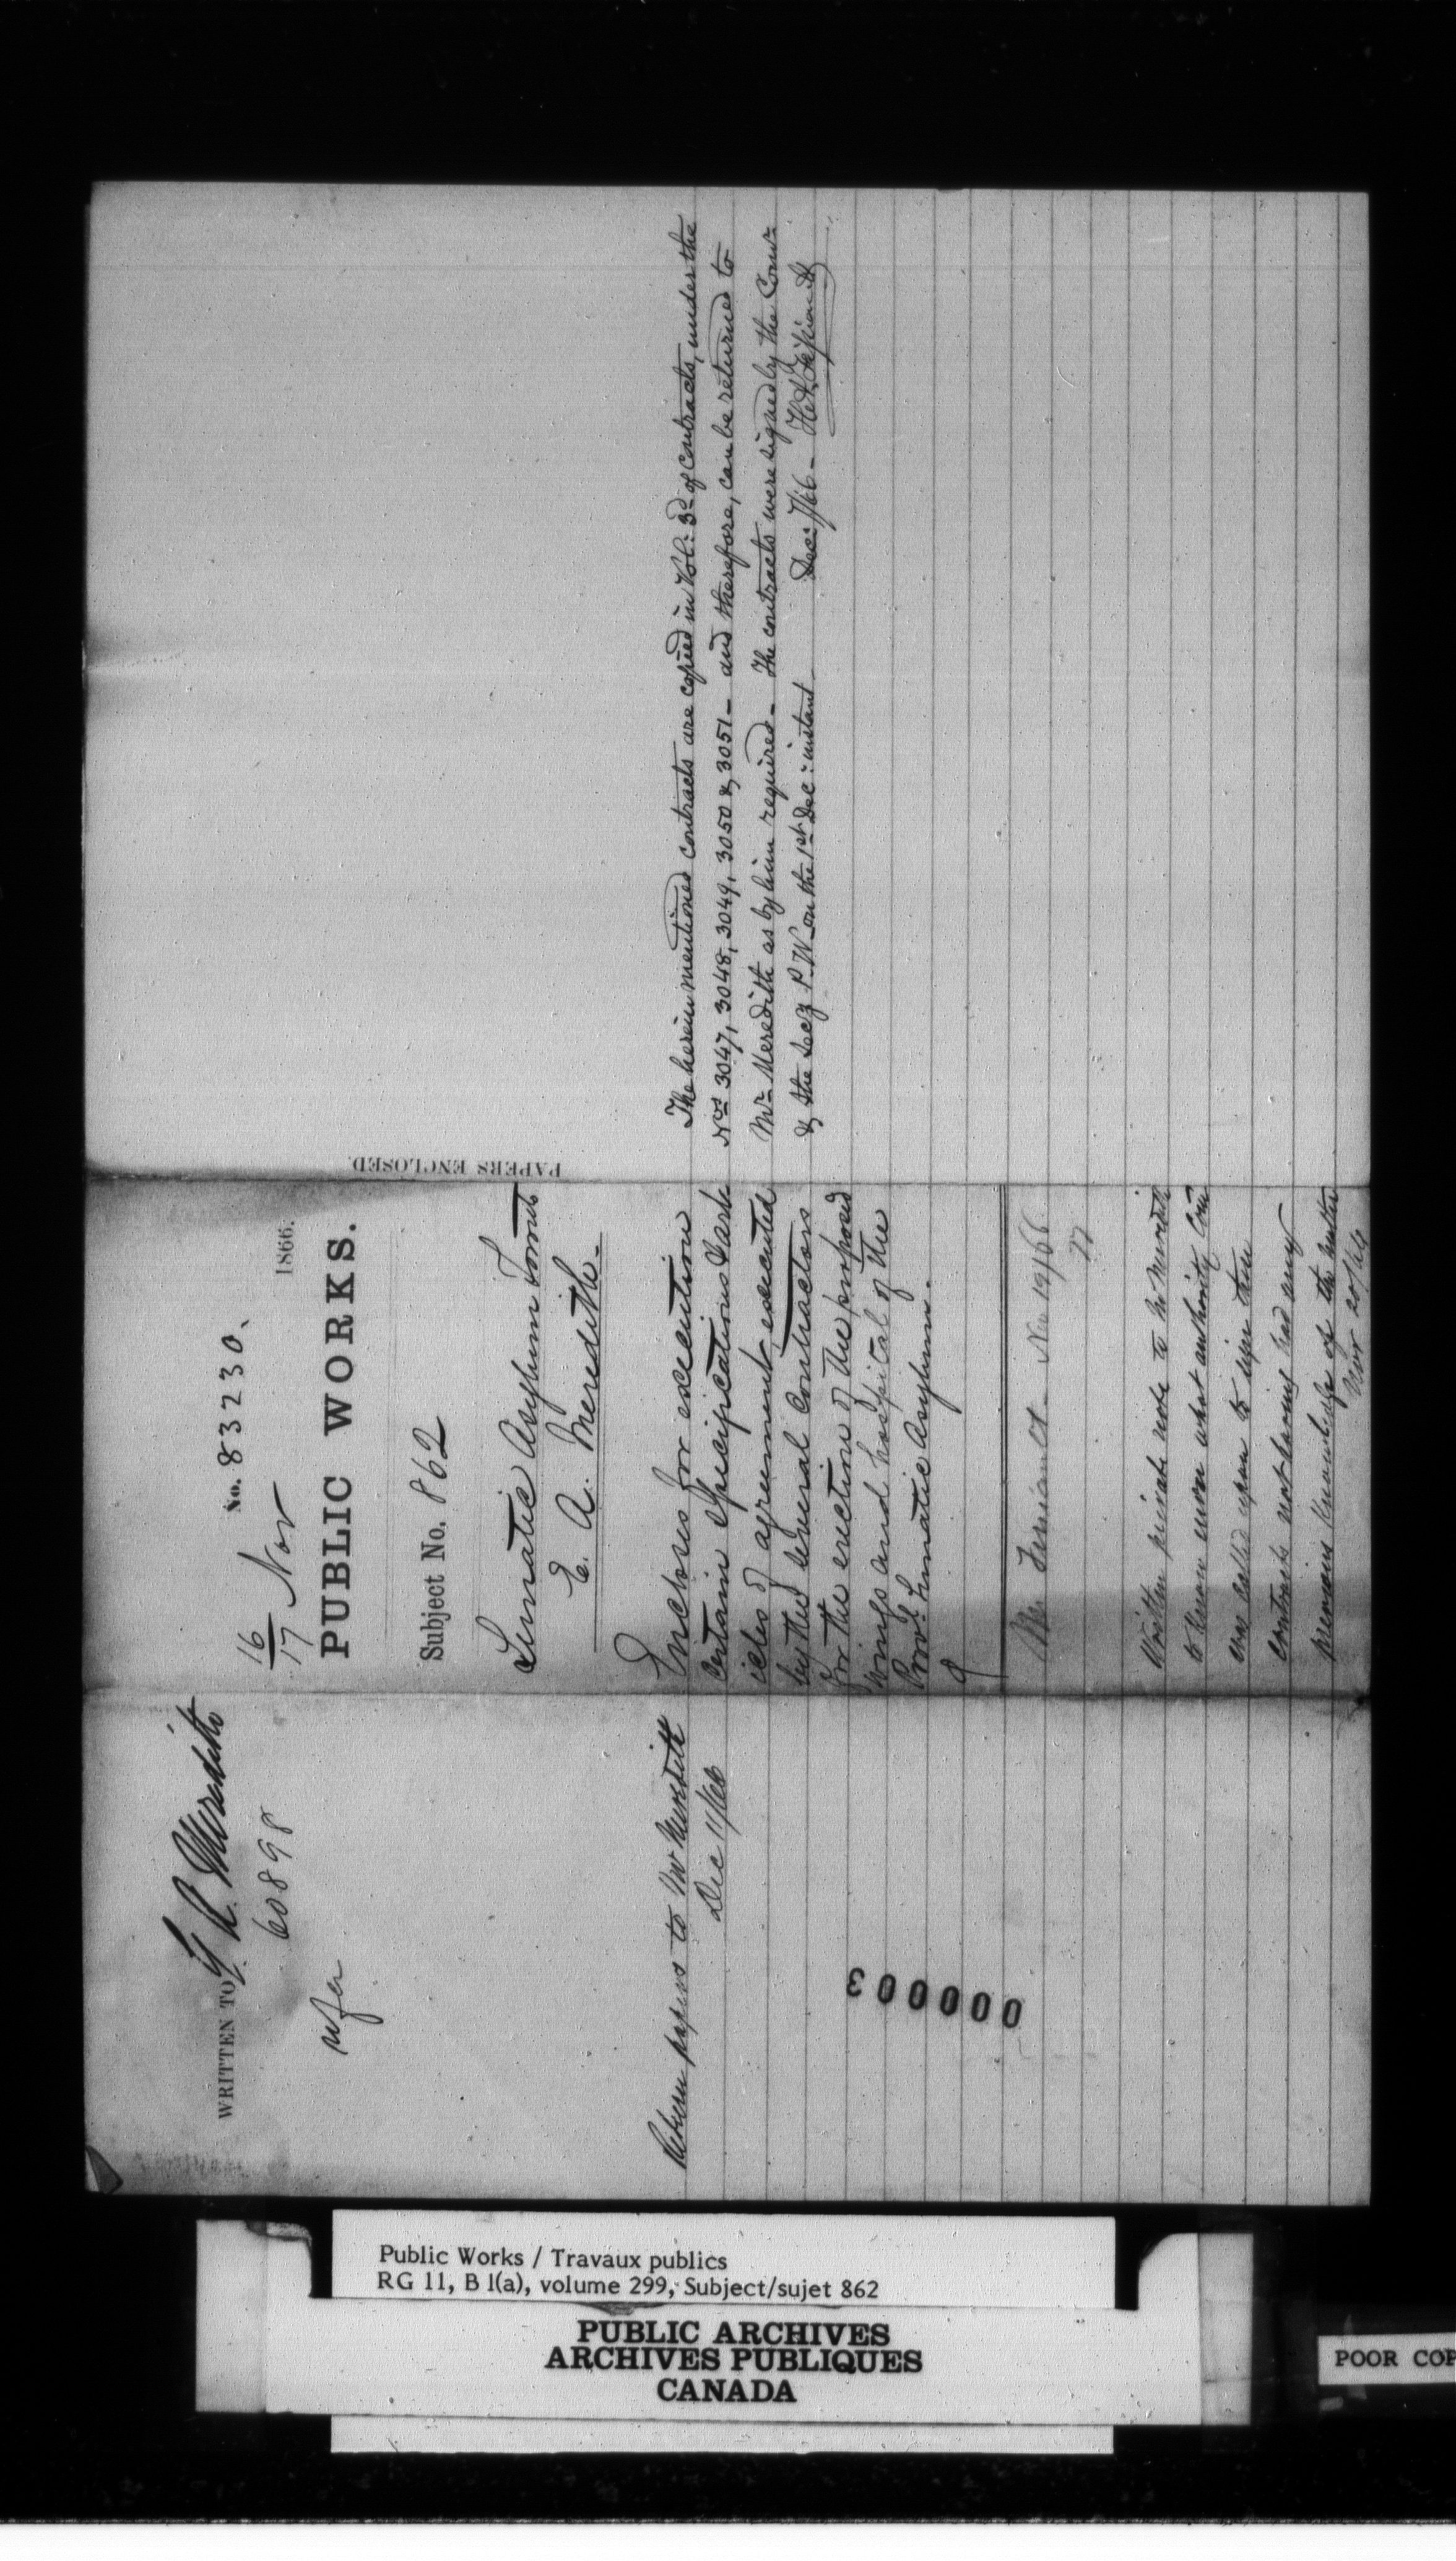 WRITTEN TO
E A. Meredith
60898
wfer
Return papers to Mr Meredith
Dec 11/66
000003
No. 83230.
16
17 Nov 1866.
PUBLIC WORKS.
Subject No. 862
Lunatic Asylum Toronto
E. A. Meredith.
Encloses for execution
certain Specifications & art-
icles of agreement executed
by the several Contractors
for the erection of the proposed
wings and hospital of the
Provl. Lunatic Asylum.
Nov 19/66
Written private note to Mr Meredith
to know upon what authority Com
was called upon to sign these
contracts not having had any
previous knowledge of the matter
Nov 20/66
PAPERS ENCLOSED.
The herein mentioned contracts are copied in Vol: 3d of Contracts, under the
Nos 3047, 3048, 3049, 3050 & 3051 – and therefore, can be returned to
Mr Meredith as by him required – The contracts were signed by the Comr
& the Secy P. W. on the 1st Dec: instant
Dec: 7/66 –
Public Works / Travaux publics
RG 11, B 1(a), volume 299, Subject/sujet 862
PUBLIC ARCHIVES
ARCHIVES PUBLIQUES
CANADA
POOR COP